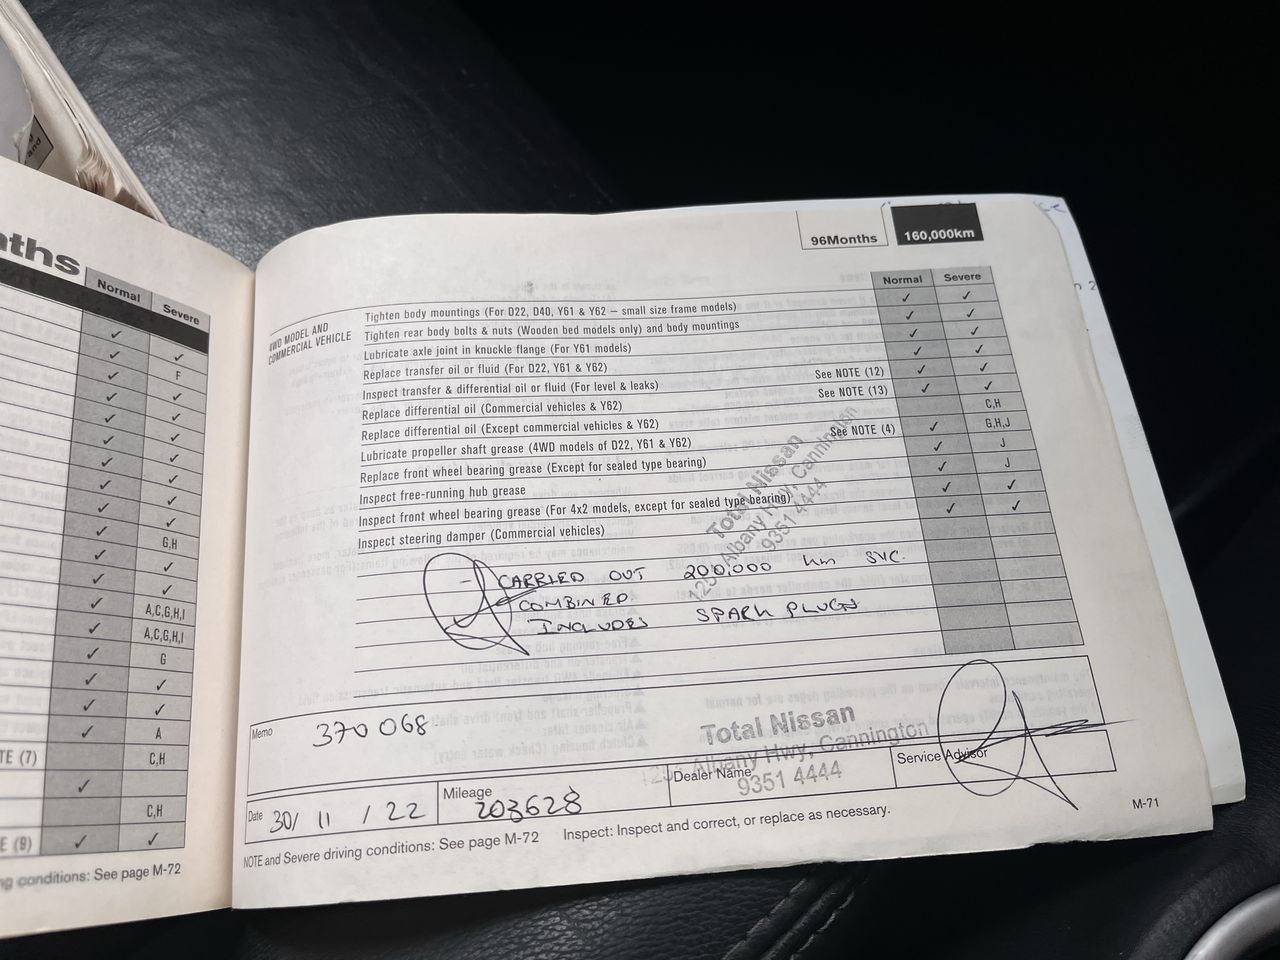 and
nths
Normal
Severe
F
G,H
A,C,G,H,I
A,C,G,H,I
G
A
TE (7)
C,H
C,H
E (9)
ng conditions: See page M-72
96Months
160,000km
Normal
Severe
4WD MODEL AND
COMMERCIAL VEHICLE
Tighten body mountings (For D22, D40, Y61 & Y62 – small size frame models)
Tighten rear body bolts & nuts (Wooden bed models only) and body mountings
Lubricate axle joint in knuckle flange (For Y61 models)
Replace transfer oil or fluid (For D22, Y61 & Y62)
Inspect transfer & differential oil or fluid (For level & leaks)
Replace differential oil (Commercial vehicles & Y62) See NOTE (12)
Replace differential oil (Except commercial vehicles & Y62) See NOTE (13)
C,H
Lubricate propeller shaft grease (4WD models of D22, Y61 & Y62)
G,H,J
Replace front wheel bearing grease (Except for sealed type bearing) See NOTE (4)
J
Inspect free-running hub grease
J
Inspect front wheel bearing grease (For 4x2 models, except for sealed type bearing)
Inspect steering damper (Commercial vehicles)
Total Nissan
Albany Hwy, Cannington
9351 4444
CARRIED OUT 200,000 km SVC.
COMBINED
INCLUDES SPARK PLUGS
Memo
370068
Total Nissan
Albany Hwy, Cannington
9351 4444
Date 30/ 11 / 22
Mileage
203628
Dealer Name
Service Advisor
NOTE and Severe driving conditions: See page M-72 Inspect: Inspect and correct, or replace as necessary.
M-71